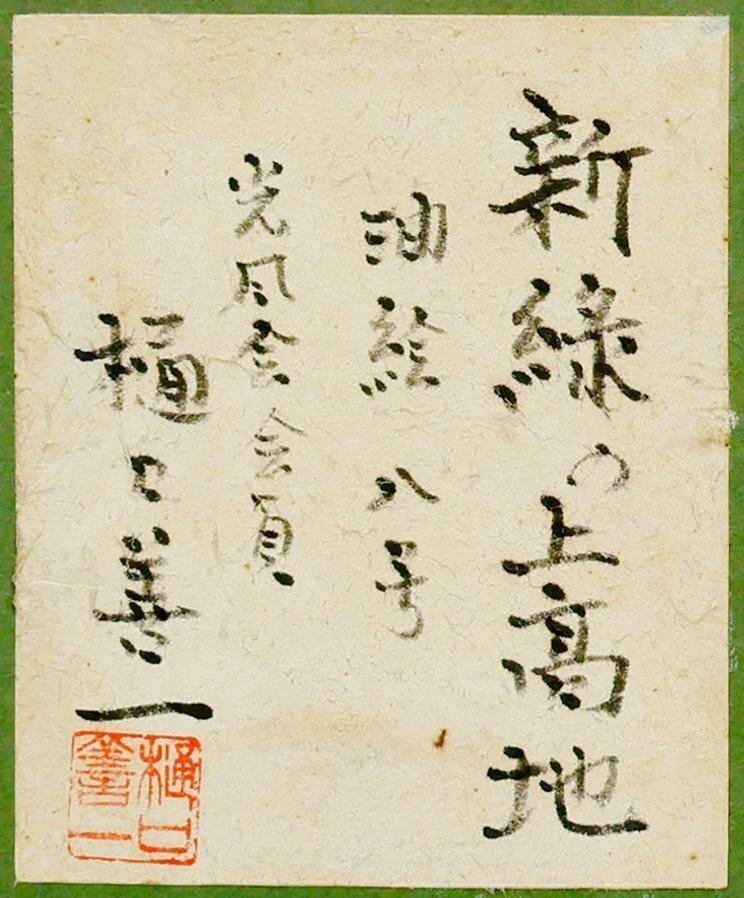 新緑の上高地
油絵 八号
光風会会員
樋口善一
樋口
善一